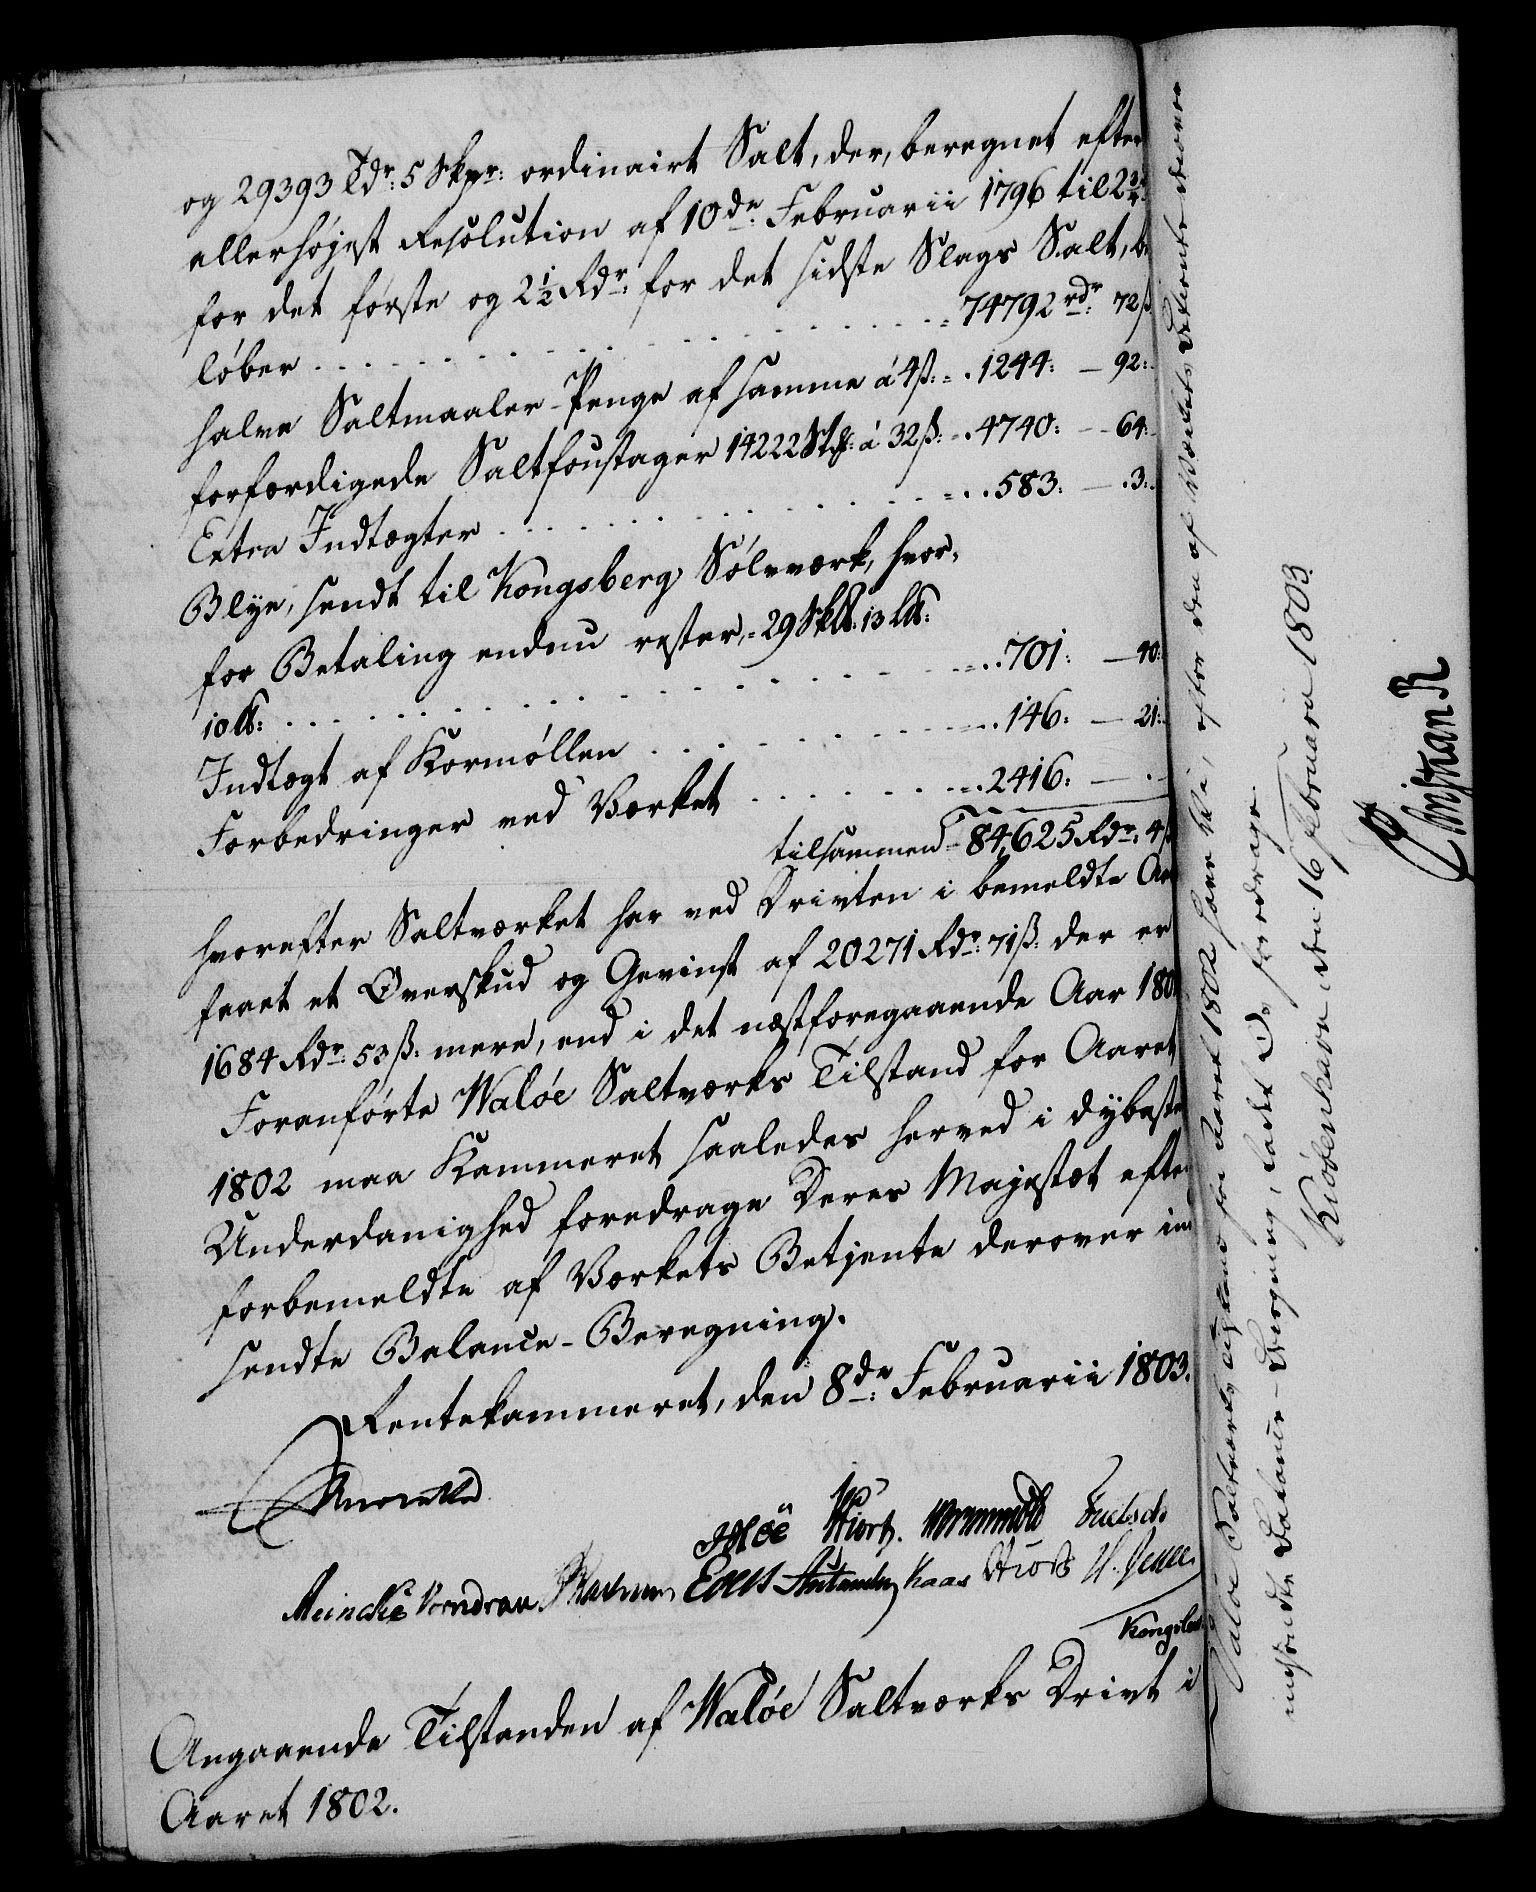 og 29393 Tdr: 5 Skpr: ordinairt Salt, der, beregnet efter
allerhøjest Resolution af 10de Februarii 1796 til 2¾
for det første og 2½ Rdr: for det sidste Slags Salt, be
løber . . . . . . . . . . . . 74792 rdr 72 ß
halve Saltmaaler-Penge af samme á 4 ß: = . 1244: — 92:
forfærdigede Saltfoustager 14222 Stk: á 32 ß: = . 4740: — 64:
Extra Indtægter . . . . . . . . . . = . . 583: — . 3:
Blye, sendt til Kongsberg Sølvværk, hvor,
for Betaling endnu rester, = 29 Sk℔: 13 L℔:
10 ℔: . . . . . . . . . . . . = . . 701: — 40:
Indtægt af Kornmøllen . . . . . . . = . . 146: — 21:
Forbedringer ved Værket . . . . . = . . 2416: — . —
tilsammen = 84,625 Rdr: 4 ß
hvorefter Saltværket har ved Drivten i bemeldte Aar
faaet et Overskud og Gevinst af 20271 Rdr: 71 ß: der er
1684 Rdr: 53 ß: mere, end i det næstforegaaende Aar 180
Foranførte Waløe Saltværks Tilstand for Aaret
1802 maa Kammeret saaledes herved i dybeste
Underdanighed foredrage Deres Majestæt efter
forbemeldte af Værkets Betjente derover ind
sendte Balance-Beregning.
Rentekammeret, den 8de Februarii 1803.
Hiort. Wormskiold
Meincke Vorndran Kaas Hiort
Kongelov
Angaaende Tilstanden af Waløe Saltværks Drivt i
Aaret 1802.
Valøe Saltværks Tilstand for Aaret 1802 have Vi, efter den af Værkets Betiente derover
indsendte Balance-Beregning, ladet Os foredrage.
Kiøbenhavn den 16 Februarii 1803.
Christian R